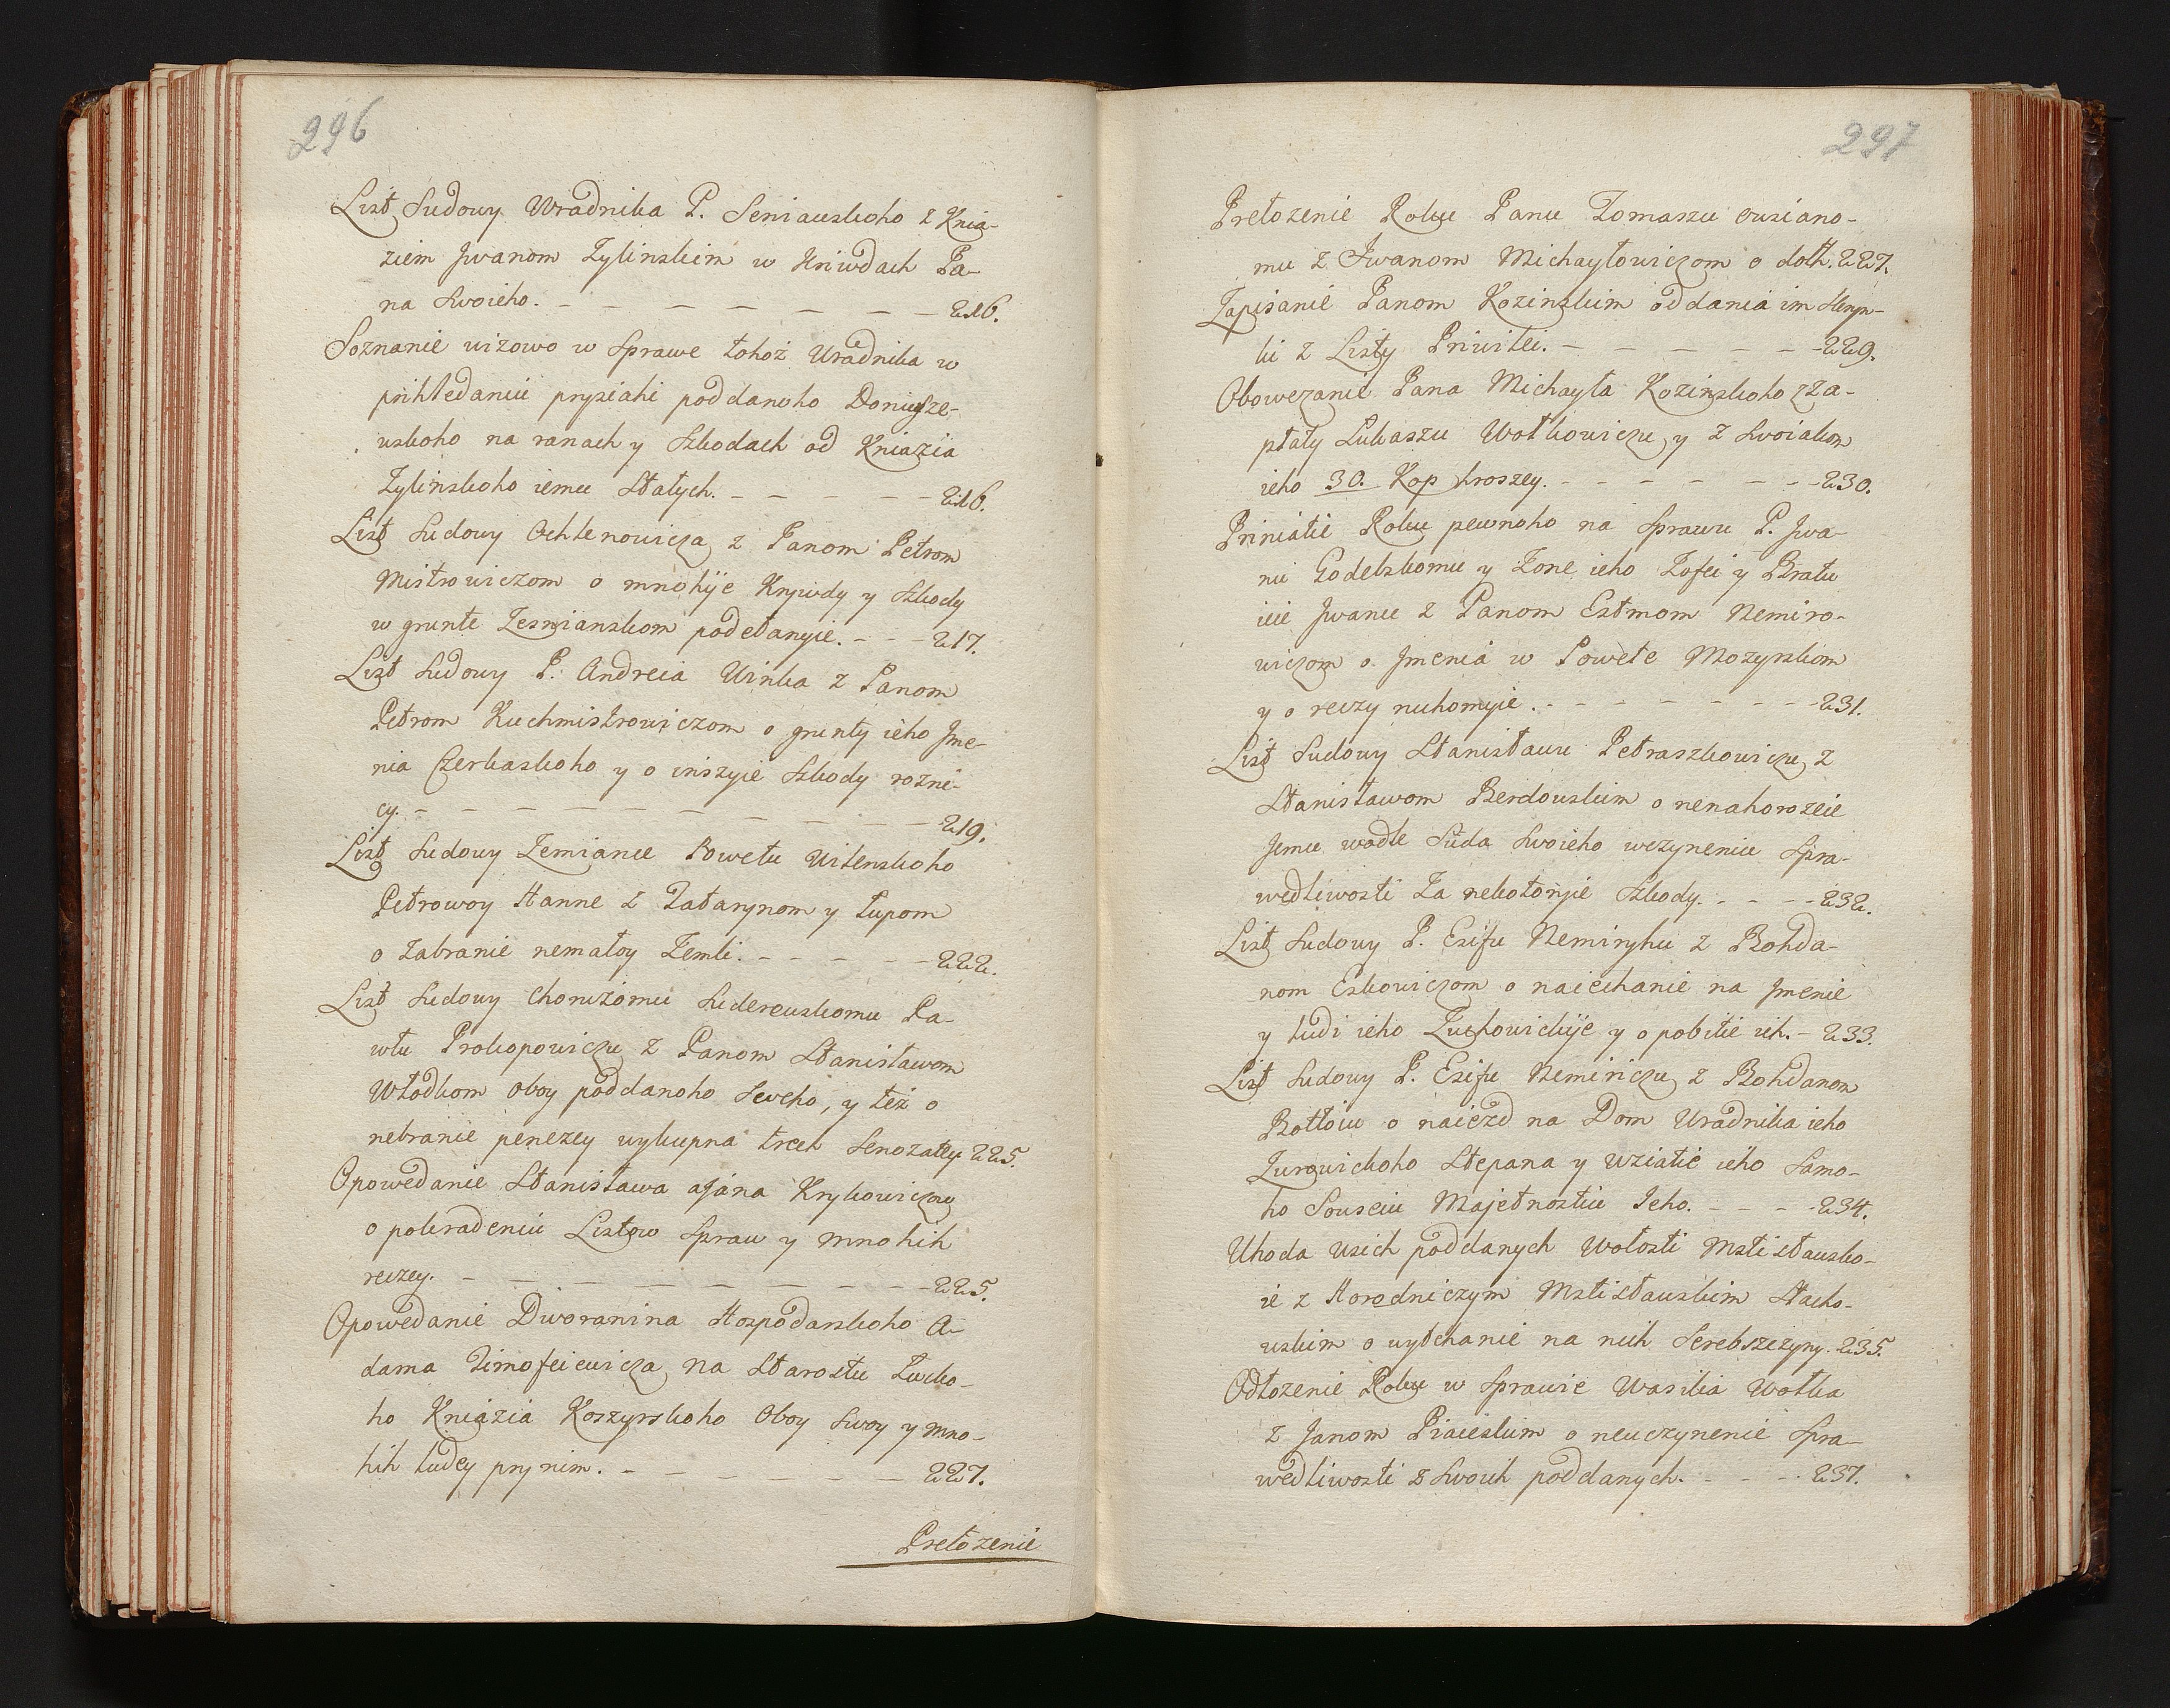 296
List Sudowy Wradnika P. Seniauskoho z Knia-
ziem Jwanom Zylinskim w Kriwdach Pa-
na Swoieho. — — — — — — — 216.
Soznanie wizowo w Sprawe tohoż Uradnika w
prihledaniu prysiahi poddanoho
uskoho na ranach y Szkodach od Kniazia
Zylinskoho iemu Stałych. — — — — — 216.
List Sudowy Ochlenowicza z Panom Petrom
Mistrowiczom o mnohije Krywdy y Szkody
w grunte Lesnianskom podełanyie. - - - 217.
List Sudowy P. Andreia Uinka z Panom
Petrom Kuchmistrowiczom o grunty ieho Jme-
nia Czerkaskoho y o inszyie Szkody rozni-
cy. — — — — — — — — — 219.
List Sudowy Zemianu Powetu Witenskoho
Petrowoy Hanne z Tatarynom y Łupom
o Zabranie nemałoy Zemli. - - - - - 222.
List Sudowy Choruzomu Sudereuskomu Pa-
włu Prokopowiczu z Panom Stanisławom
Włodkom oboy poddanoho Sweho, y też o
nebranie penezey wykupna trech Senozatey 225.
Opowedanie Stanisława a Jana Krykowiczow
o pokradeniu Listow Spraw y mnohih
reczey. — — — — — — — — 225.
Opowedanie Dworanina Hospodarskoho A-
dama Timofeiewicza na Starostu Łucko-
ho Kniazia Koszyrskoho Oboy Swoy y mno-
hih ludey pry nim. — — — — — — 227.
Prełozenie
297
Prełozenie Roku Panu Tomaszu
mu z Jwanom Michayłowiczom o dołh. 227.
Zapisanie Panom Kozinskim oddania im
ki z Listy Priwilei. — — — — — — 229.
Obowezanie Pana Michayła Kozinskoho zza-
płaty Lukaszu Wołkowiczu y z Swoiakom
ieho 30. Kop hroszey. - - - - - - - 230.
Priniatie Roku pewnoho na Sprawu P. Jwa-
nu Godebskomu y Zone ieho Zofei y Bratu
ieie Jwanu z Panom Estmom Nemiro-
wiczom o Jmenia w Powete Mozyrskom
y o reczy ruhomyie. - - - - - - - - 231.
List Sudowy Stanisławu Petraszkowiczu z
Stanisławom Berdouskim o nenahorozeie
Jemu wodle Suda Swoieho wczyneniu Spra-
wedliwosti Za nekotoryie Szkody. - - - - 232.
List Sudowy P. Esifu Nemiryhu z Bohda-
nom Eskowiczom o naiechanie na Jmenie
y ludi ieho Zuchowickije y o pobitie ich. - 233.
List Sudowy P. Esifu Nemiriczu z Bohdanom
Botłoiu o naiezd na Dom Uradnika ieho
Zurowickoho Stepana y wziatie ieho Samo-
ho Souseiu Majetnostiu Jeho. - - - - 234.
Uhoda wsich poddanych Wołosti Mstisłausko-
ie z Horodniczym Mstisłauskim Stacho-
uskim o wybchanie na nich Serebszczyny. 235.
Odłozenie Roku w Sprawie Wasilia Wołka
z Janom o neuczynenie Spra-
wedliwosti z Swoich poddanych. - - - - 237.